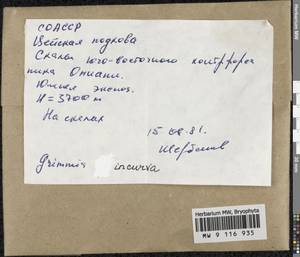 СОАССР
Цейская подкова
Скалы юго-восточного контрфорса
пика Ониани.
Южная экспоз.
H = 3700 м
На скалах
15.08.81.
Grimmia incurva
Herbarium MW, Bryophyta
MW 9 116 935